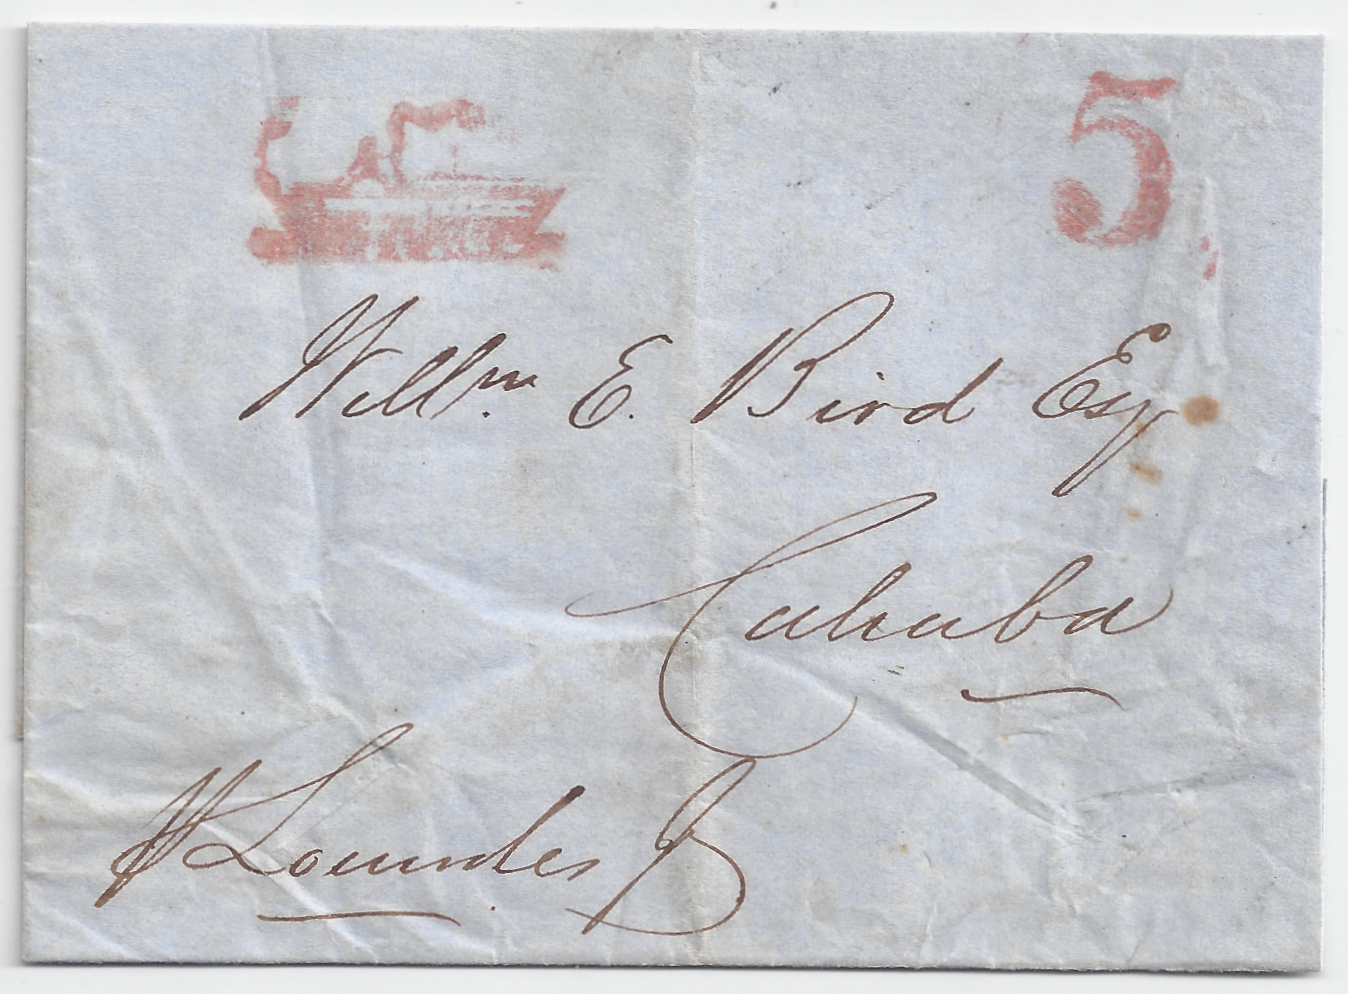 5
Willm. E. Bird Esq
Cahaba
Lowndes